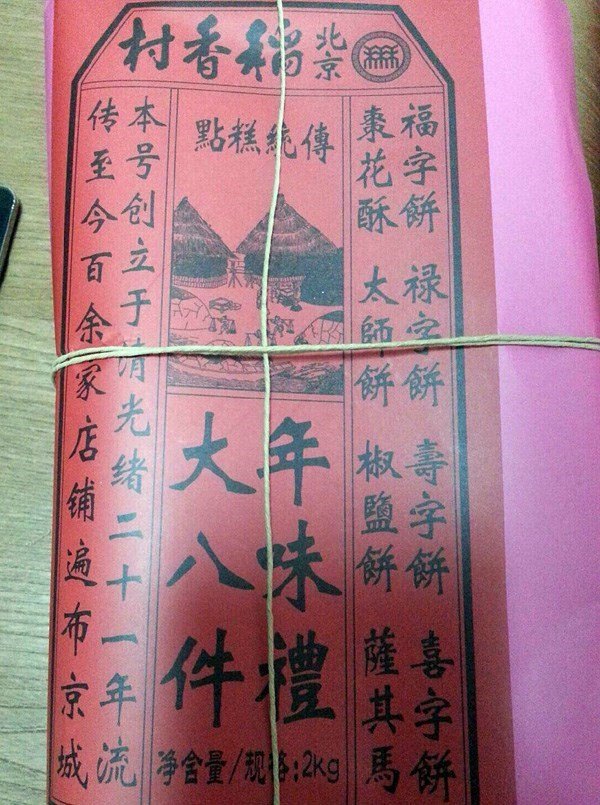 北京稻香村
福字餅 禄字餅 壽字餅 喜字餅
棗花酥 太師餅 椒鹽餅 薩其馬
傳統糕點
年味禮
大八件
净含量/规格:2kg
本号创立于清光绪二十一年流
传至今百余家店铺遍布京城